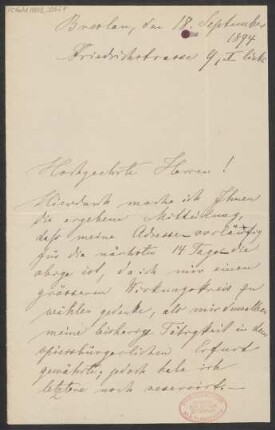 Breslau, den 18. September
1894
Friedrichstrasse 9, I links
Hochgeehrte Herren!
Hierdurch mache ich Ihnen
die ergebene Mitteilung,
dass meine Adresse vorläufig
für die nächsten 14 Tage die
obige ist, da ich mir einen
grösseren Wirkungskreis zu
wählen gedenke, als mir
meine bisherige Tätigkeit in dem
spiessbürgerlichen Erfurt
gewährte, jedoch habe ich
letztere noch reservirt.